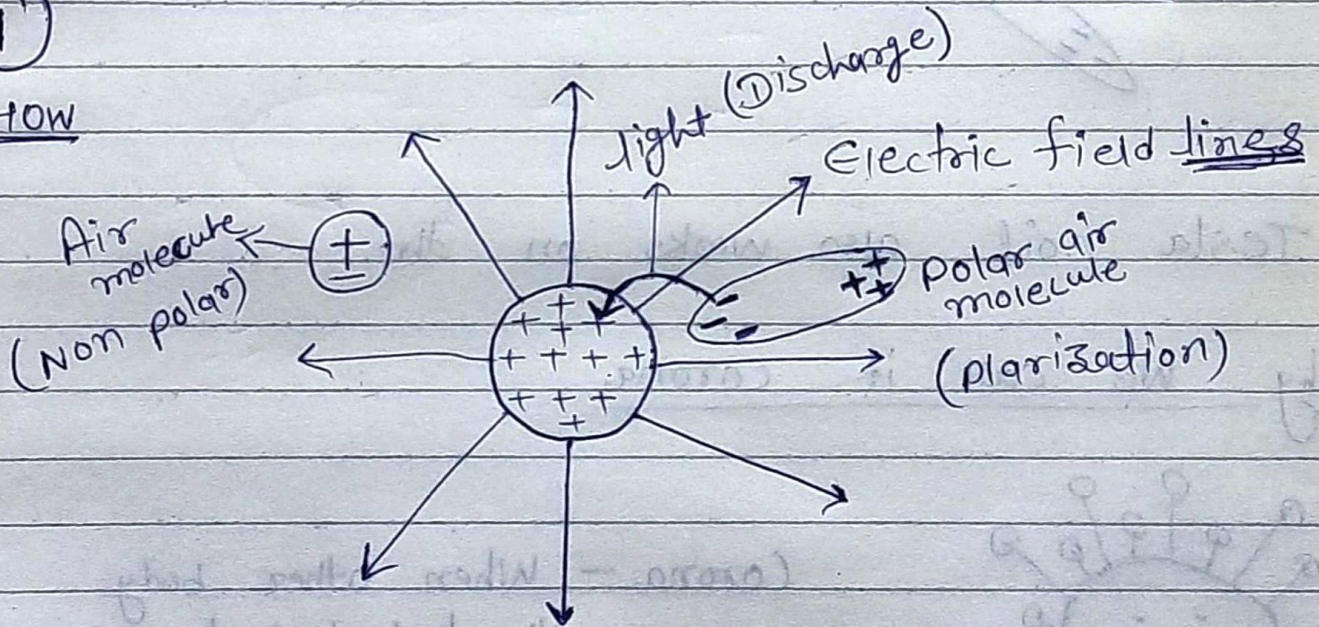 1)
HOW
light (Discharge)
Electric field lines
Air
molecute
(Non polar)
+
−
+ + +
− − −
polar air
molecute
(plarization)
+
+ + +
+ + + +
+ + +
+